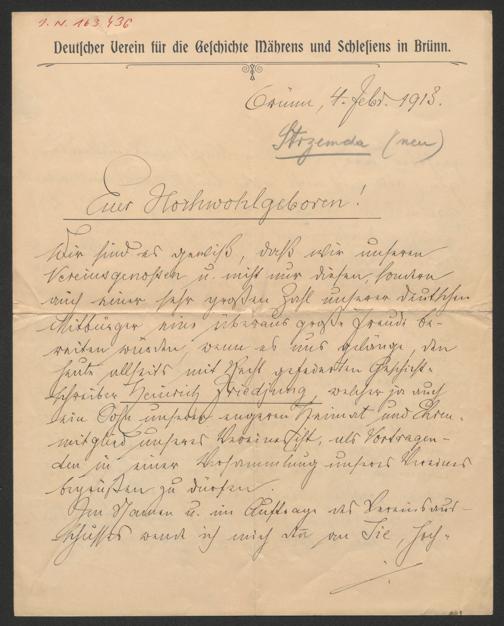 I. N. 163.436
Deutscher Verein für die Geschichte Mährens und Schlesiens in Brünn.
Brünn, 4. Febr. 1913.
Strzemcha (neu)
Euer Hochwohlgeboren!
Wir sind es gewiß, daß wir unseren
Vereinsgenossen u. nicht nur diesen, sondern
auch einer sehr großen Zahl unserer deutschen
Mitbürger eine überaus große Freude be-
reiten würden, wenn es uns gelänge, den
heute allseits mit Recht gefeierten Geschicht-
schreiber Heinrich Friedjung, welcher ja auch
ein Sohn unserer engeren Heimat und Ehren-
mitglied unseres Vereines ist, als Vortragen-
den in einer Versammlung unseres Vereines
begrüßen zu dürfen.
Im Namen u. im Auftrage des Vereinsaus-
schusses wende ich mich an Sie, Hoch-